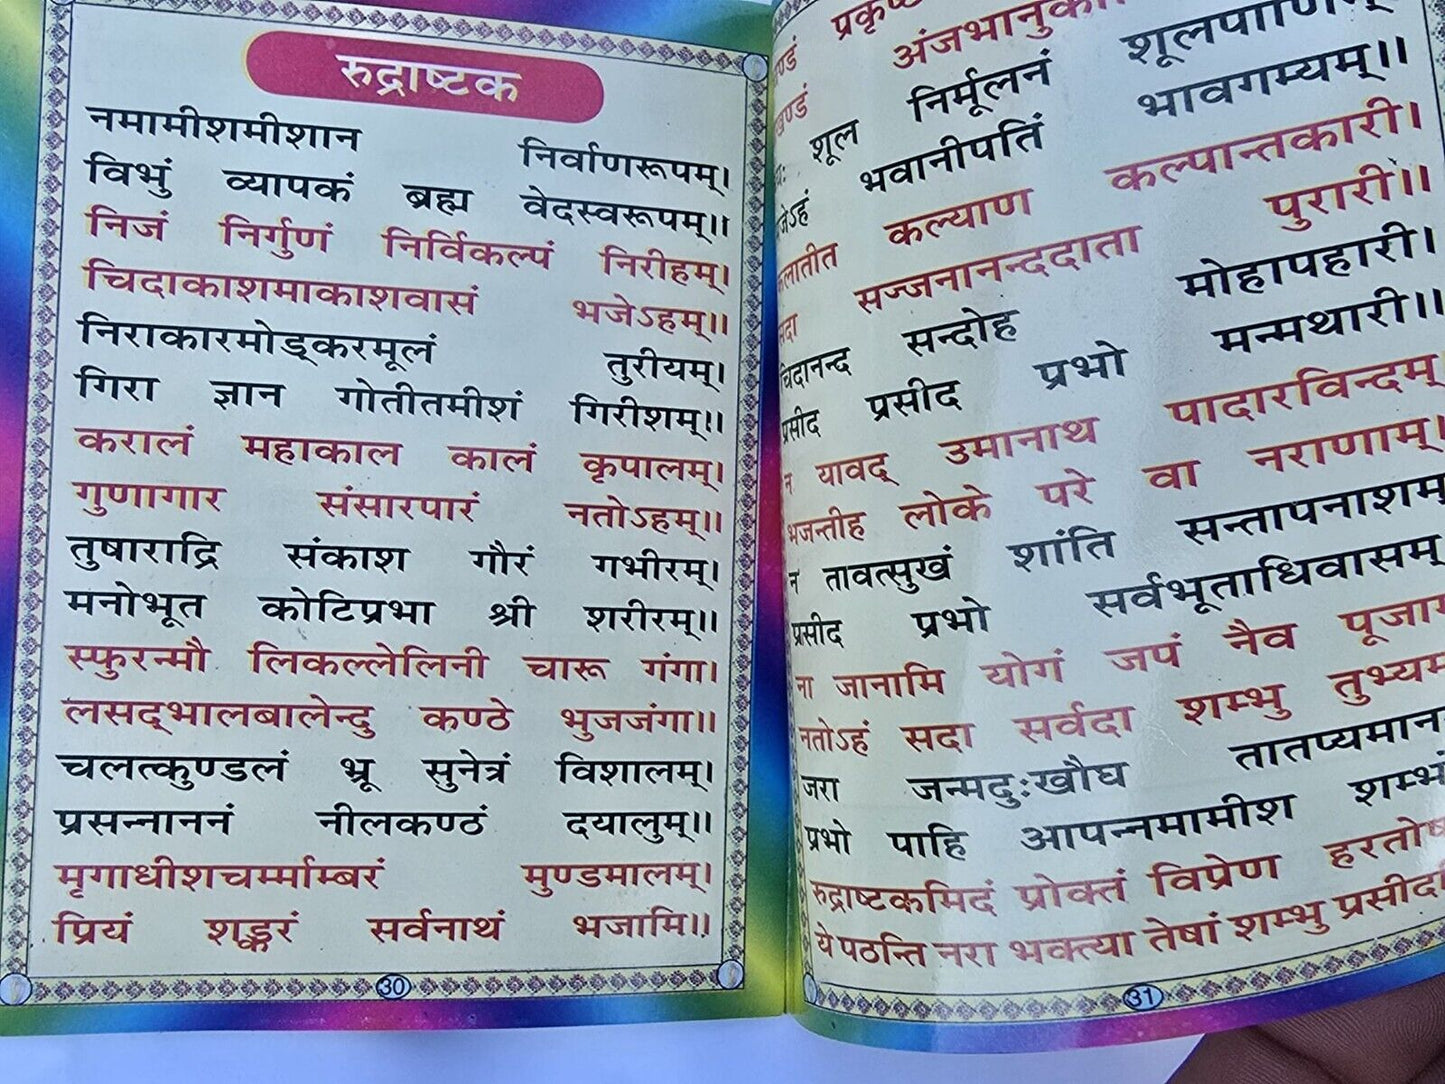 रुद्राष्टक
नमामीशमीशान निर्वाणरूपम्।
विभुं व्यापकं ब्रह्म वेदस्वरूपम्॥
निजं निर्गुणं निर्विकल्पं निरीहम्।
चिदाकाशमाकाशवासं भजेऽहम्॥
निराकारमोड्करमूलं तुरीयम्।
गिरा ज्ञान गोतीतमीशं गिरीशम्॥
करालं महाकाल कालं कृपालम्।
गुणागार संसारपारं नतोऽहम्॥
तुषाराद्रि संकाश गौरं गभीरम्।
मनोभूत कोटिप्रभा श्री शरीरम्॥
स्फुरन्मौ लिकल्लेलिनी चारू गंगा।
लसद्भालबालेन्दु कण्ठे भुजजंगा॥
चलत्कुण्डलं भ्रू सुनेत्रं विशालम्।
प्रसन्नाननं नीलकण्ठं दयालुम्॥
मृगाधीशचर्म्माम्बरं मुण्डमालम्।
प्रियं शङ्करं सर्वनाथं भजामि॥
30
अंजभानुको
शूल निर्मूलनं शूलपाणिम्
भवानीपतिं भावगम्यम्॥
कल्याण कल्पान्तकारी।
सज्जनानन्ददाता पुरारी॥
चिदानन्द सन्दोह मोहापहारी।
प्रसीद प्रसीद प्रभो मन्मथारी॥
न यावद् उमानाथ पादारविन्दम्
भजन्तीह लोके परे वा नराणाम्।
न तावत्सुखं शांति सन्तापनाशम्
प्रसीद प्रभो सर्वभूताधिवासम्
ना जानामि योगं जपं नैव पूजा
नतोऽहं सदा सर्वदा शम्भु तुभ्यम
जरा जन्मदुःखौघ तातप्यमान
प्रभो पाहि आपन्नमामीश शम्भ
रुद्राष्टकमिदं प्रोक्तं विप्रेण हरतो
ये पठन्ति नरा भक्त्या तेषां शम्भु प्रसीद
31